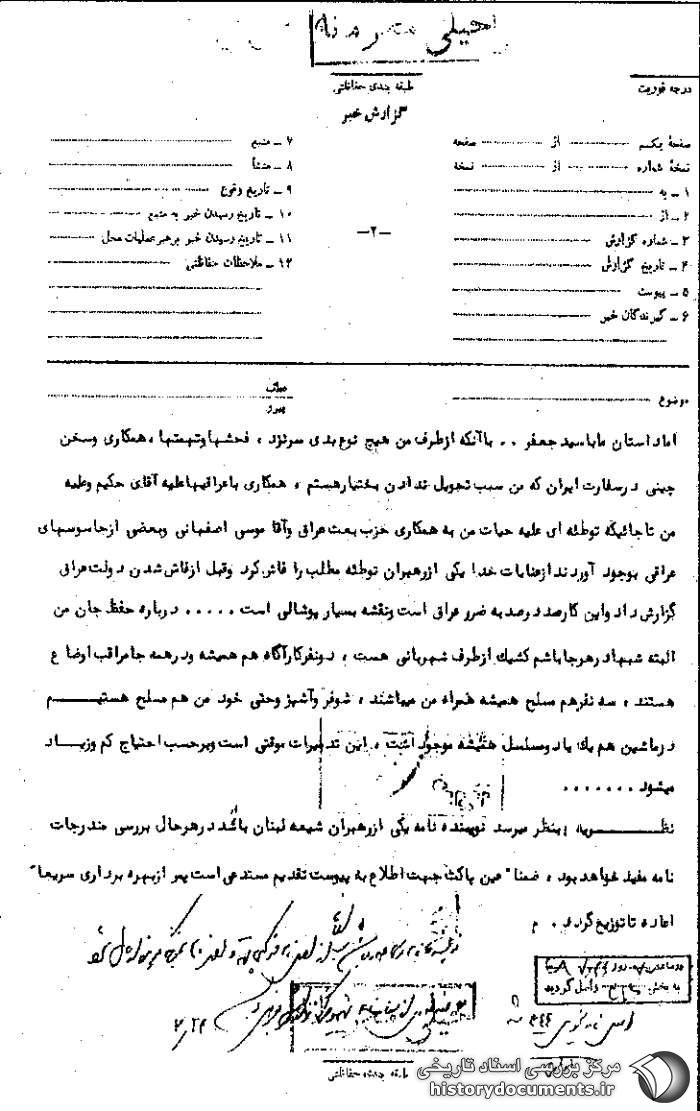 خیلی محرمانه
طبقه بندی حفاظتی
درجه فوریت
گزارش خبر
صفحهٔ یکم از صفحه
نسخهٔ شماره از نسخه
۱ ـ به
۲ ـ از
۳ ـ شماره گزارش
۴ ـ تاریخ گزارش
۵ ـ پیوست
۶ ـ گیرندگان خبر
۷ ـ منبع
۸ ـ منشأ
۹ ـ تاریخ وقوع
۱۰ ـ تاریخ رسیدن خبر به منبع
۱۱ ـ تاریخ رسیدن خبر برهبر عملیات محل
۱۲ ـ ملاحظات حفاظتی
ـ۲ـ
موضوع
عطف
پیرو
اما داستان ما با سید جعفر .. با آنکه از طرف من هیچ نوع بدی سر نزد ، فحشها و تهمتها ، همکاری و سخن
چینی در سفارت ایران که من سبب تحویل ندادن بختیار هستم ، همکاری با عراقیها علیه آقای حکیم و علیه
من تا جائیکه توطئه ای علیه حیات من به همکاری حزب بعث عراق و آقا موسی اصفهانی و بعضی از جاسوسهای
عراقی بوجود آوردند از عنایات خدا یکی از رهبران توطئه مطلب را فاش کرد و قبل از فاش شدن دولت عراق
گزارش داد و این کار صد در صد به ضرر عراق است و نقشه بسیار پوشالی است ..... درباره حفظ جان من
البته شبها در هر جا باشم کشیک از طرف شهربانی هست ، دو نفر کارآگاه هم همیشه و در همه جا مراقب اوضاع
هستند ، سه نفر هم مسلح همیشه همراه من میباشند ، شوفر و آشپز و حتی خود من هم مسلح هستیم
در ماشین هم یک یا دو مسلسل همیشه موجود است ، این تدبیرات موقتی است و بر حسب احتیاج کم و زیاد
میشود .......
نظریه : بنظر میرسد نویسنده نامه یکی از رهبران شیعه لبنان باشد در هر حال بررسی مندرجات
نامه مفید خواهد بود ، ضمنا" عین پاکت جهت اطلاع به پیوست تقدیم مستدعی است پس از بهره برداری سریعا"
اعاده تا توزیع گردد . م
به بخش واصل گردید
طبقه بندی حفاظتی
مرکز بررسی اسناد تاریخی
historydocuments.ir